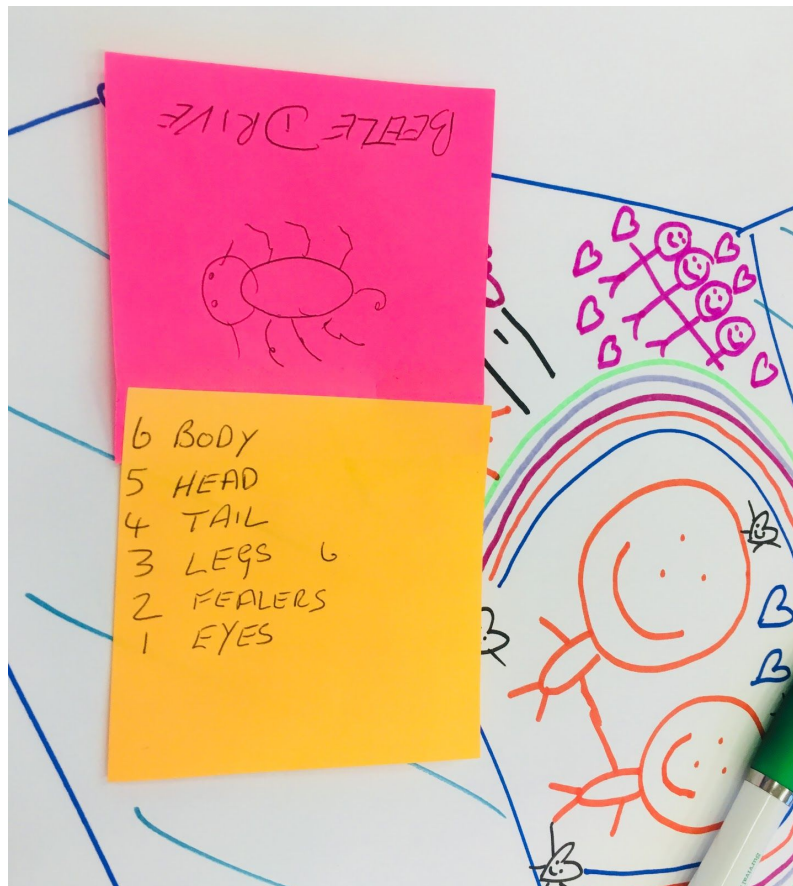 BEETLE DRIVE
6 BODY
5 HEAD
4 TAIL
3 LEGS 6
2 FEALERS
1 EYES